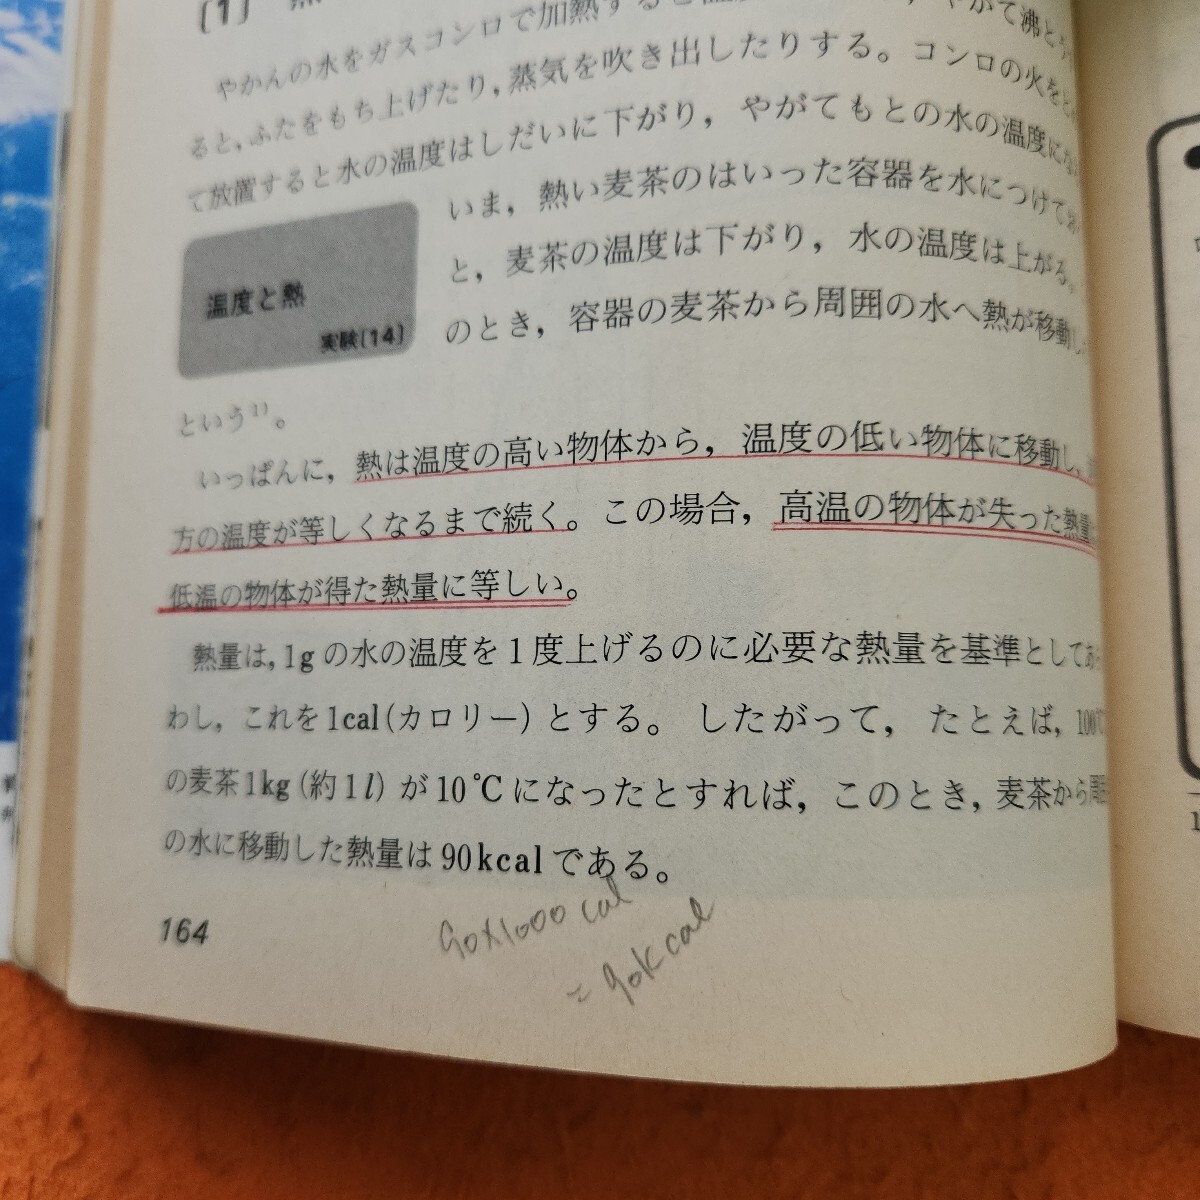 〔1〕 熱
やかんの水をガスコンロで加熱すると温度 やがて沸とう
ると,ふたをもち上げたり,蒸気を吹き出したりする。コンロの火を
て放置すると水の温度はしだいに下がり，やがてもとの水の温度にな
いま，熱い麦茶のはいった容器を水につけて
と，麦茶の温度は下がり，水の温度は上がる。
温度と熱
実験〔14〕
のとき，容器の麦茶から周囲の水へ熱が移動し
という¹⁾。
いっぱんに，熱は温度の高い物体から，温度の低い物体に移動し，
方の温度が等しくなるまで続く。この場合，高温の物体が失った熱量
低温の物体が得た熱量に等しい。
熱量は，1gの水の温度を1度上げるのに必要な熱量を基準としてあら
わし，これを1cal(カロリー)とする。したがって，たとえば，100℃
の麦茶1kg(約1l)が10℃になったとすれば，このとき，麦茶から周囲
の水に移動した熱量は90kcalである。
164
90×1000 cal
= 90kcal
1